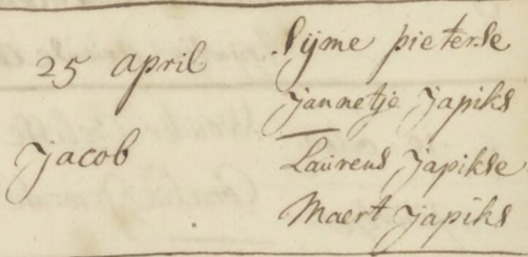 25 april
Jacob
Sijme pieterse
Jannetje Japiks
Laurens Japikse
Maert Japiks